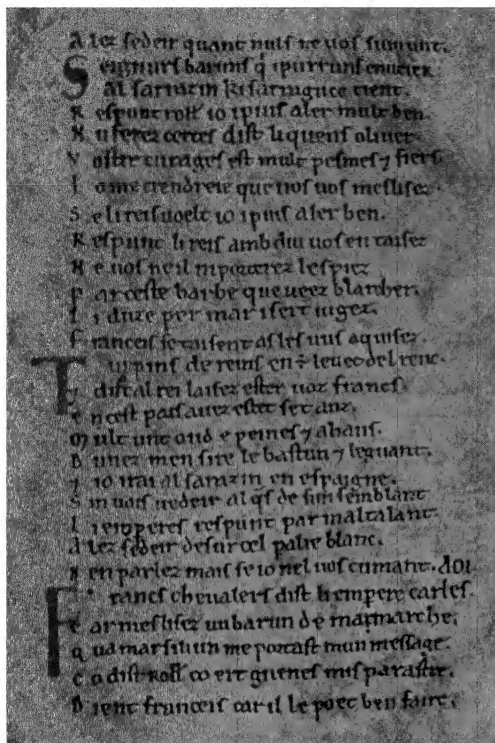 Alez sedeir quant nuls ne vos sumunt.
Seignurs baruns q̇ i purruns enveier
al sarrazin ki sarraguce tient.
Respunt Roll̃ io i puis aler mult ben.
Nu ferez certes dist li quens oliver.
Vostre curages est mult pesmes ⁊ fiers.
Jo me crendreie que vos vos meslisez.
Se li reis voelt io i puis aler ben.
Respunt li reis ambdui vos en taisez
Ne vos ne il ni porterez les piez
Par ceste barbe que veez blancher.
Li duze per mar i sert iugez.
Franceis se taisent as les vus aquisez.
Turpins de reins en ÷ levet del renc.
⁊ dist al rei laisez ester voz francs.
En cest pais avez estet set anz.
Mult unt oud e peines ⁊ ahans.
Dunez men sire le bastun ⁊ le guant.
⁊ io irai al sarazin en espaigne.
Sin vois vedeir al q̃s de sun semblant
Li emperes respunt par maltalant.
Alez sedeir desur cel palie blanc.
Nen parlez mais se io nel vos cumant. AOI
Francs chevalers dist li empere carles.
Car meslisez un barun de ma marche.
Qua marsiliun me portast mun message.
Co dist Roll̃ co ert guenes mis parastre.
Dient franceis car il le poet ben faire.